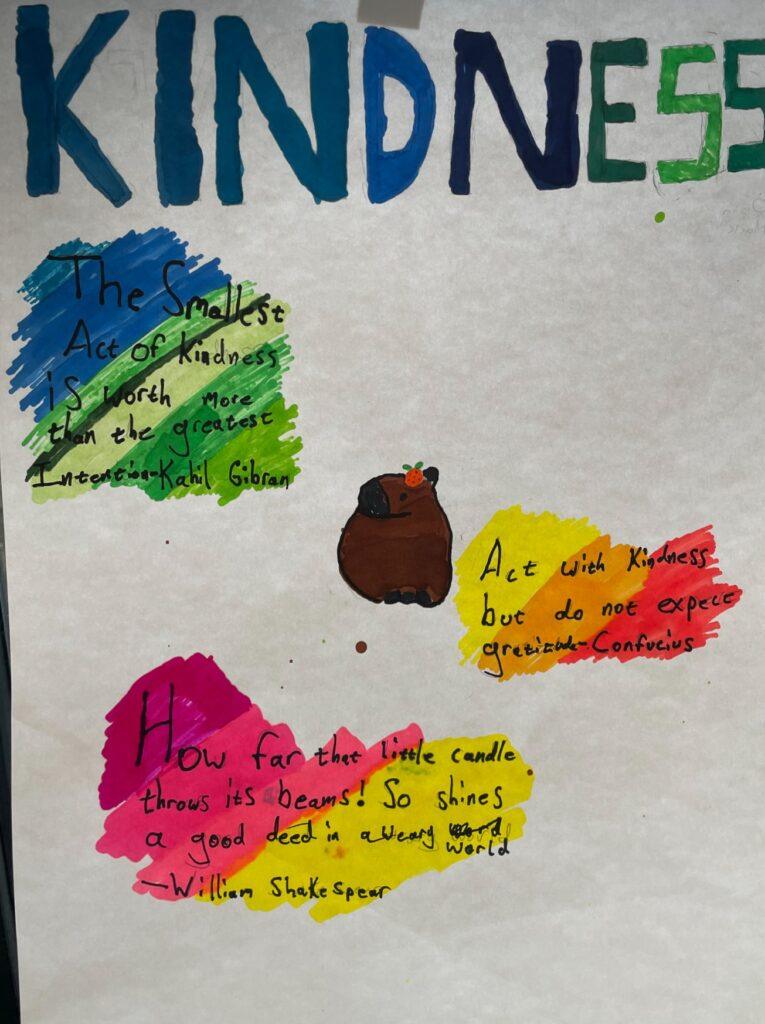 KINDNESS
The Smallest
Act of Kindness
is worth more
than the greatest
Intention-Kahil Gibran
Act with Kindness
but do not expect
gratitude-Confucius
How far that little candle
throws its beams! So shines
a good deed in a weary
world
—William Shakespear